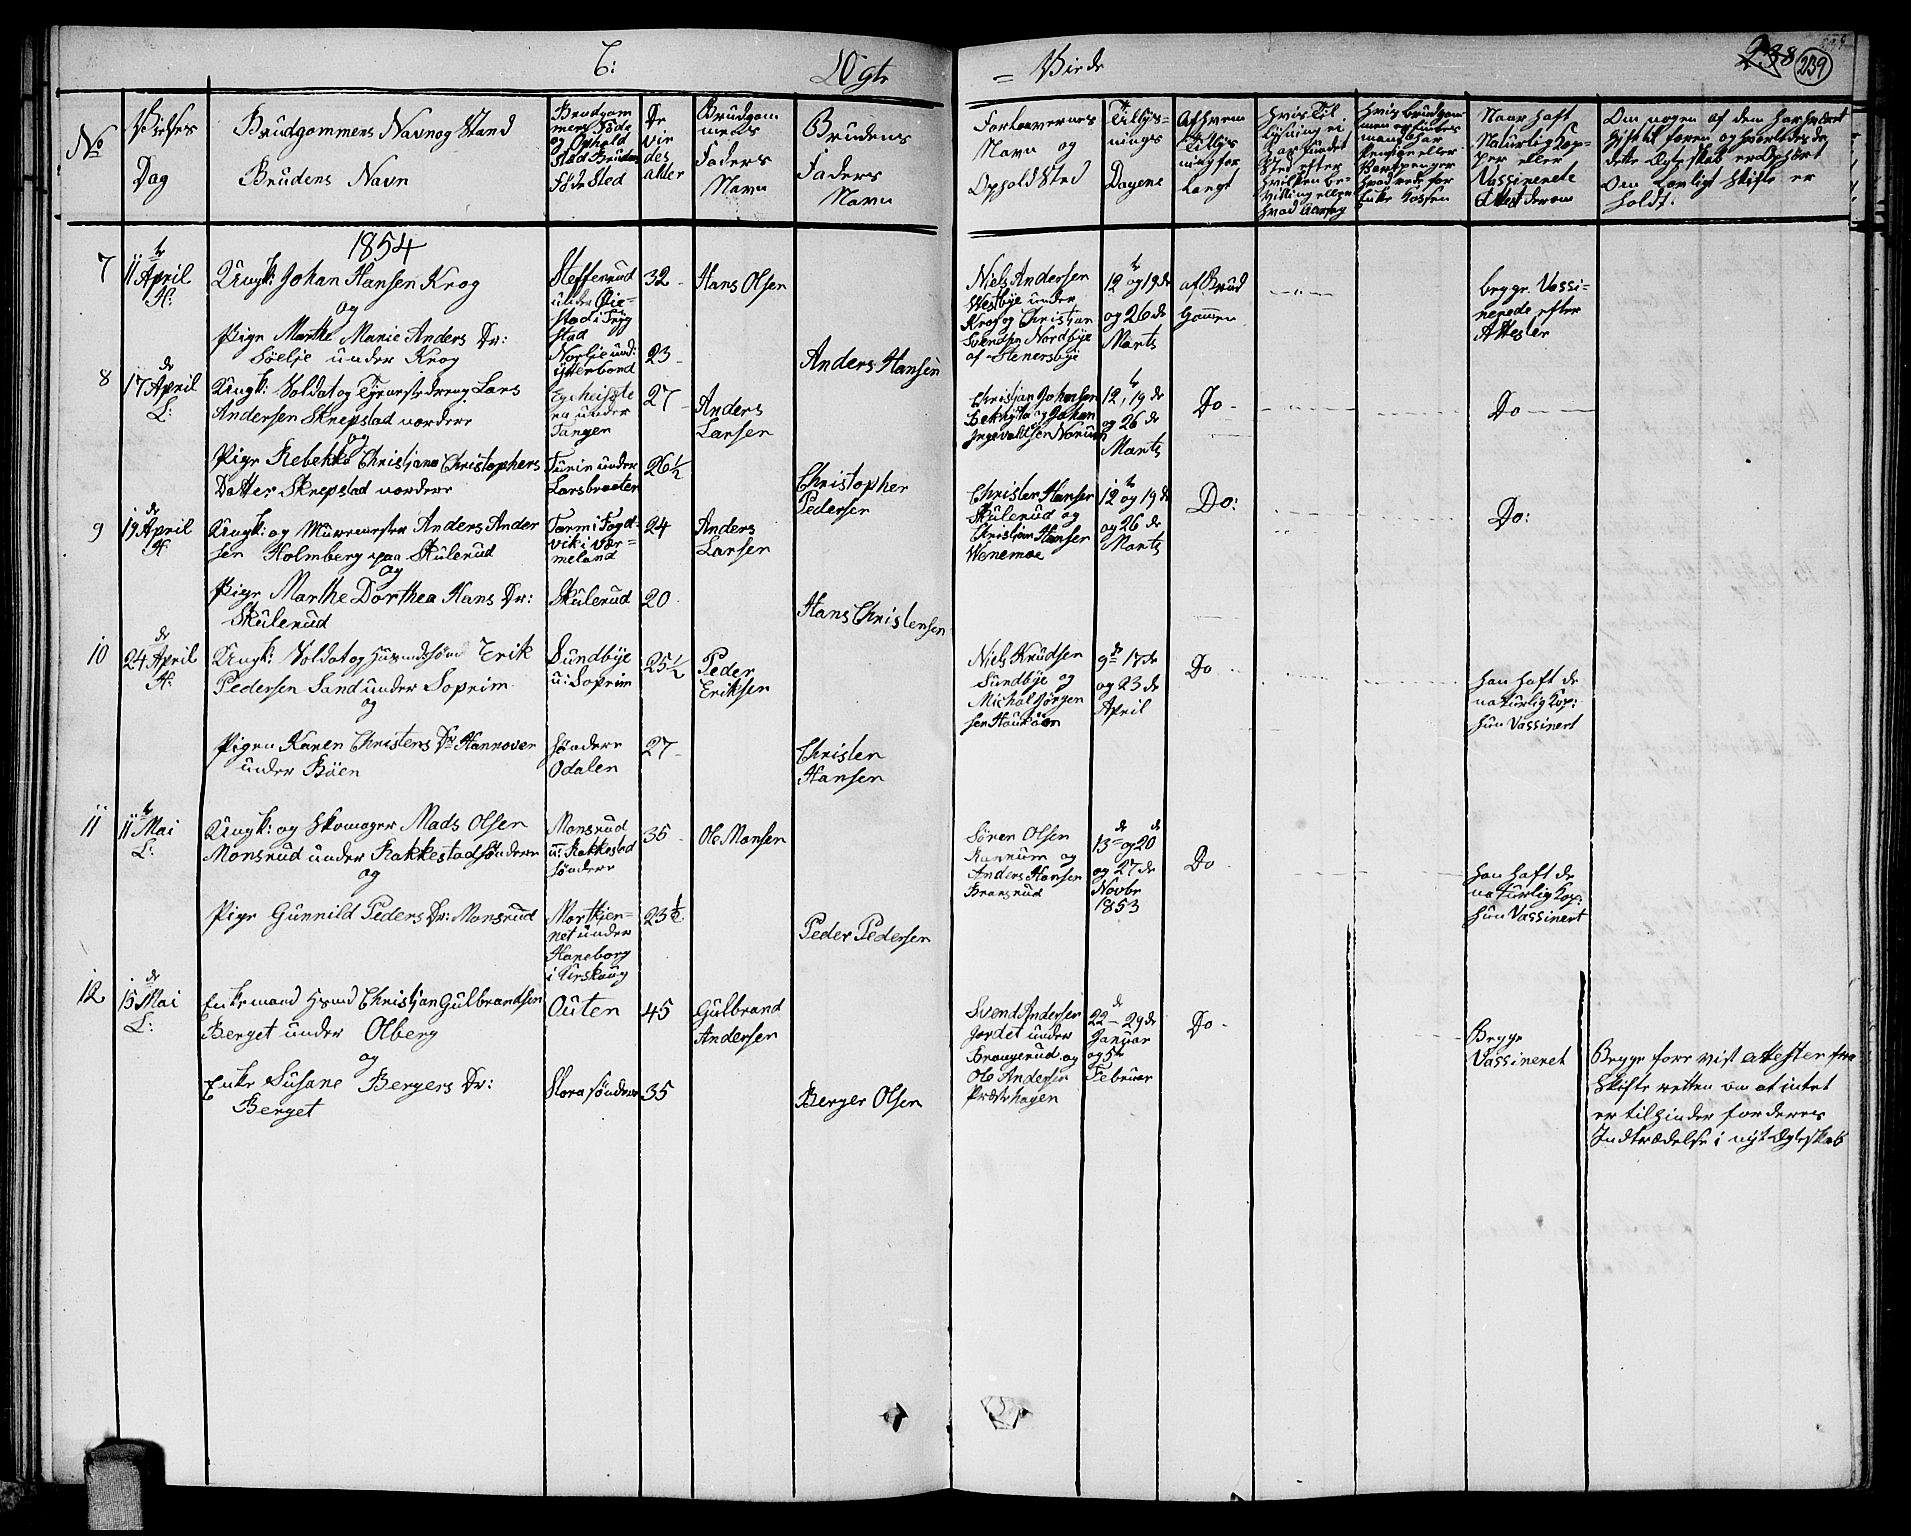 6:
Ægte
= Viede
238
239
No
Vielses
Dag
Brudgommens Navn og Stand
Brudens Navn
Brudgom
mens Føde
og Ophold
Sted Brudens
Føde Sted
De
Vie
des
alder
Brudgom
mens
Faders
Navn
Brudens
Faders
Navn
Forlovernes
Navn og
Opholdsted
Tillys-
nings
Dagene
Af hvem
Tillys
ning for
langt
Hvis Til
lysning ei
har fundet
Sted efter
hvilken be-
villing eller
hvad Aarsag
Hvis Brudgom
men
Pension eller
Naar haft
Naturlig Kop-
per eller
Vassinerede
Attest derom
Om nogen af dem har været
gift til foren og hvorledes de
dette Ægteskab er Ophørt
Om Lovligt Skifte er
holdt.
1854
7
11 te April
H:
Ungk: Johan Hansen Krog
og
Pige Marthe Marie Anders Dr:
Søelje under Krog
Steffenrud
under Øie-
stad i Tryg
stad
Norlje und:
ytterbond
32
23
Hans Olsen
Anders Hansen
Niels Andersen
Westbye under
Krog og Christian
Svendsn Nordbye
af Stenersbye
12 te og 19 de
og 26 de
Marts
af Brud
Gommen
begge Vassi-
nerede efter
Attester
8
17 de April
L:
Ungk: Soldat og Lars
Andersen Skrepstad nordere
og
Pige Rebekka Christjane Christophers
Datter Skrepstad nordere
under
Tangen
Turin under
Larsbraaten
27
26 1/2
Anders
Larsen
Christopher
Pedersen
Christjan Johansen
og Johan
Ingevaldsen Norum
12 te, 19 de
og 26 de
Marts
Do
Do
9
19 de April
H:
Ungk: og Murmester Anders Ander
sen Holmberg paa Skulerud
og
Pige Marthe Dorthea Hans Dr:
Skulerud
Tarm i Fogd-
vik i Vær-
meland
Skulerud
24
20
Anders
Larsen
Hans Christensen
Christen Hansen
Skulerud og
Christjan Hansen
Wenemoe
12 te og 19 de
og 26 de
Marts
Do:
Do:
10
24 de April
H:
Ungk: Soldat og Husmdssønd Erik
Pedersen Sand under Soprim
og
Pigen Karen Christens Dr Hannover
under Bøen
Sundbye
u: Soprim
søndere
Odalen
25 1/2
27
Peder
Eriksen
Christen
Hansen
Niels Knudsen
Sundbye og
Michal Jørgen
sen Haukaas
9 de 17 de
og 23 de
April
Do
han haft de
naturlig Kop:
hun Vassinert
11
11 te Mai
L:
Ungk: og Skomager Mads Olsen
Monsrud under Rakkestad søndere
og
Pige Gunnild Peders Dr: Monsrud
Monsrud
u: Rakkestad
søndere
Mortkjen-
net under
Haneborg
i Urskoug
35
23 1/2
Ole Monsen
Peder Pedersen
Søren Olsen
Kannum og
Anders Hansen
Bransrud
13 de og 20 de
og 27 de
Novbr
1853
Do
han haft de
naturlig Kop:
hun Vassinert
12
15 de Mai
L:
Enkemand Husmd Christjan Gulbrandsen
Berget under Olberg
og
Enke Susane Bergers Dr:
Berget
Outen
Slora søndere
45
35
Gulbrand
Andersen
Berger Olsen
Svend Andersen
Jordet under
Brangerud og
Ole Andersen
Præstehagen
22 de - 29 de
Januar
og 5te
Februar
Do
Begge
Vassineret
Begge fore vist attester fra
Skifte retten om at intet
er til hinder for deres
Indtrædelse i nyt Ægteskab